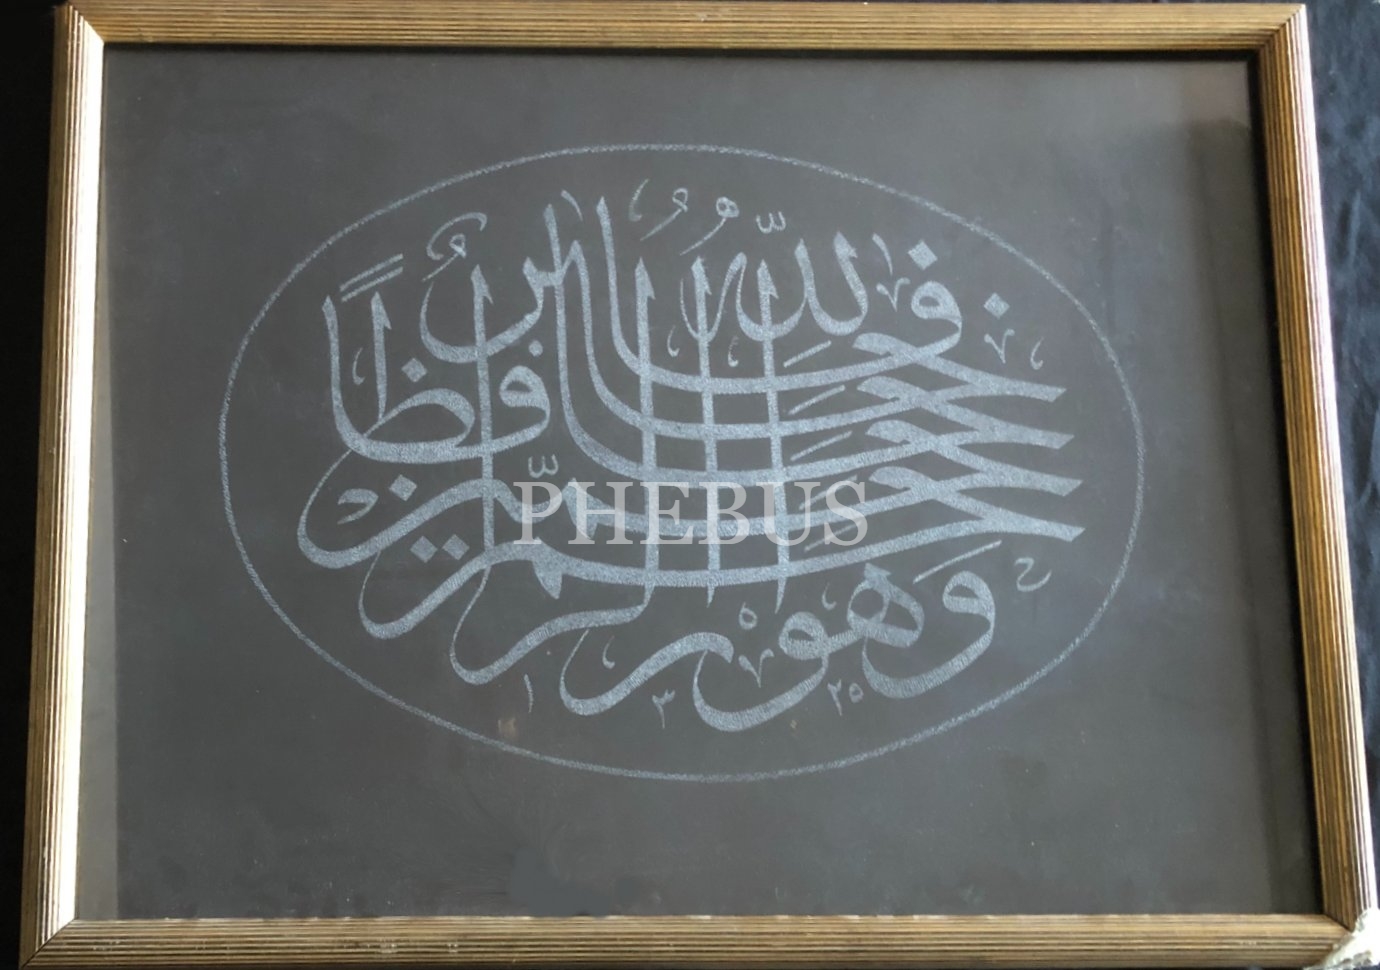 فالله خير حافظا وهو ارحم الراحمين
PHEBUS
١٣٢٥